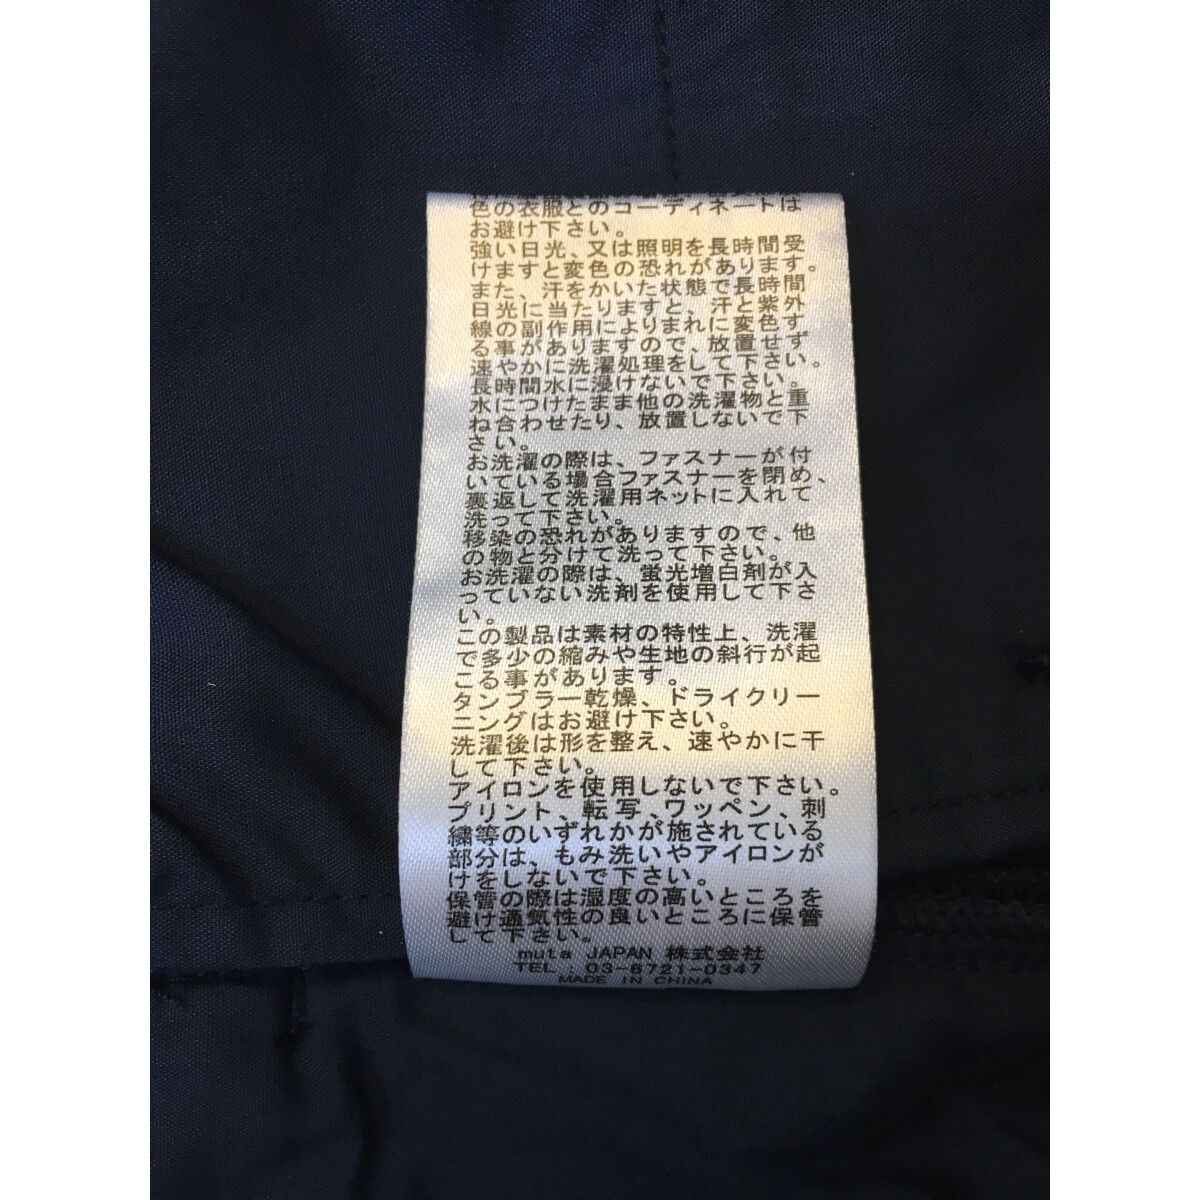 色の衣服とのコーディネートは
お避け下さい。
強い日光、又は照明を長時間受
けますと変色の恐れがあります。
また、汗をかいた状態で長時間
日光に当たりますと、汗と紫外
線の副作用によりまれに変色す
る事がありますので、放置せず
速やかに洗濯処理をして下さい。
長時間水に浸けないで下さい。
水につけたまま他の洗濯物と重
ね合わせたり、放置しないで下
さい。
お洗濯の際は、ファスナーが付
いている場合ファスナーを閉め、
裏返して洗濯用ネットに入れて
洗って下さい。
移染の恐れがありますので、他
の物と分けて洗って下さい。
お洗濯の際は、蛍光増白剤が入
っていない洗剤を使用して下さ
い。
この製品は素材の特性上、洗濯
で多少の縮みや生地の斜行が起
こる事があります。
タンブラー乾燥、ドライクリー
ニングはお避け下さい。
洗濯後は形を整え、速やかに干
して下さい。
アイロンを使用しないで下さい。
プリント、転写、ワッペン、刺
繍等のいずれかが施されている
部分は、もみ洗いやアイロンが
けをしないで下さい。
保管の際は湿度の高いところを
避け通気性の良いところに保管
して下さい。
muta JAPAN 株式会社
TEL : 03-6721-0347
MADE IN CHINA